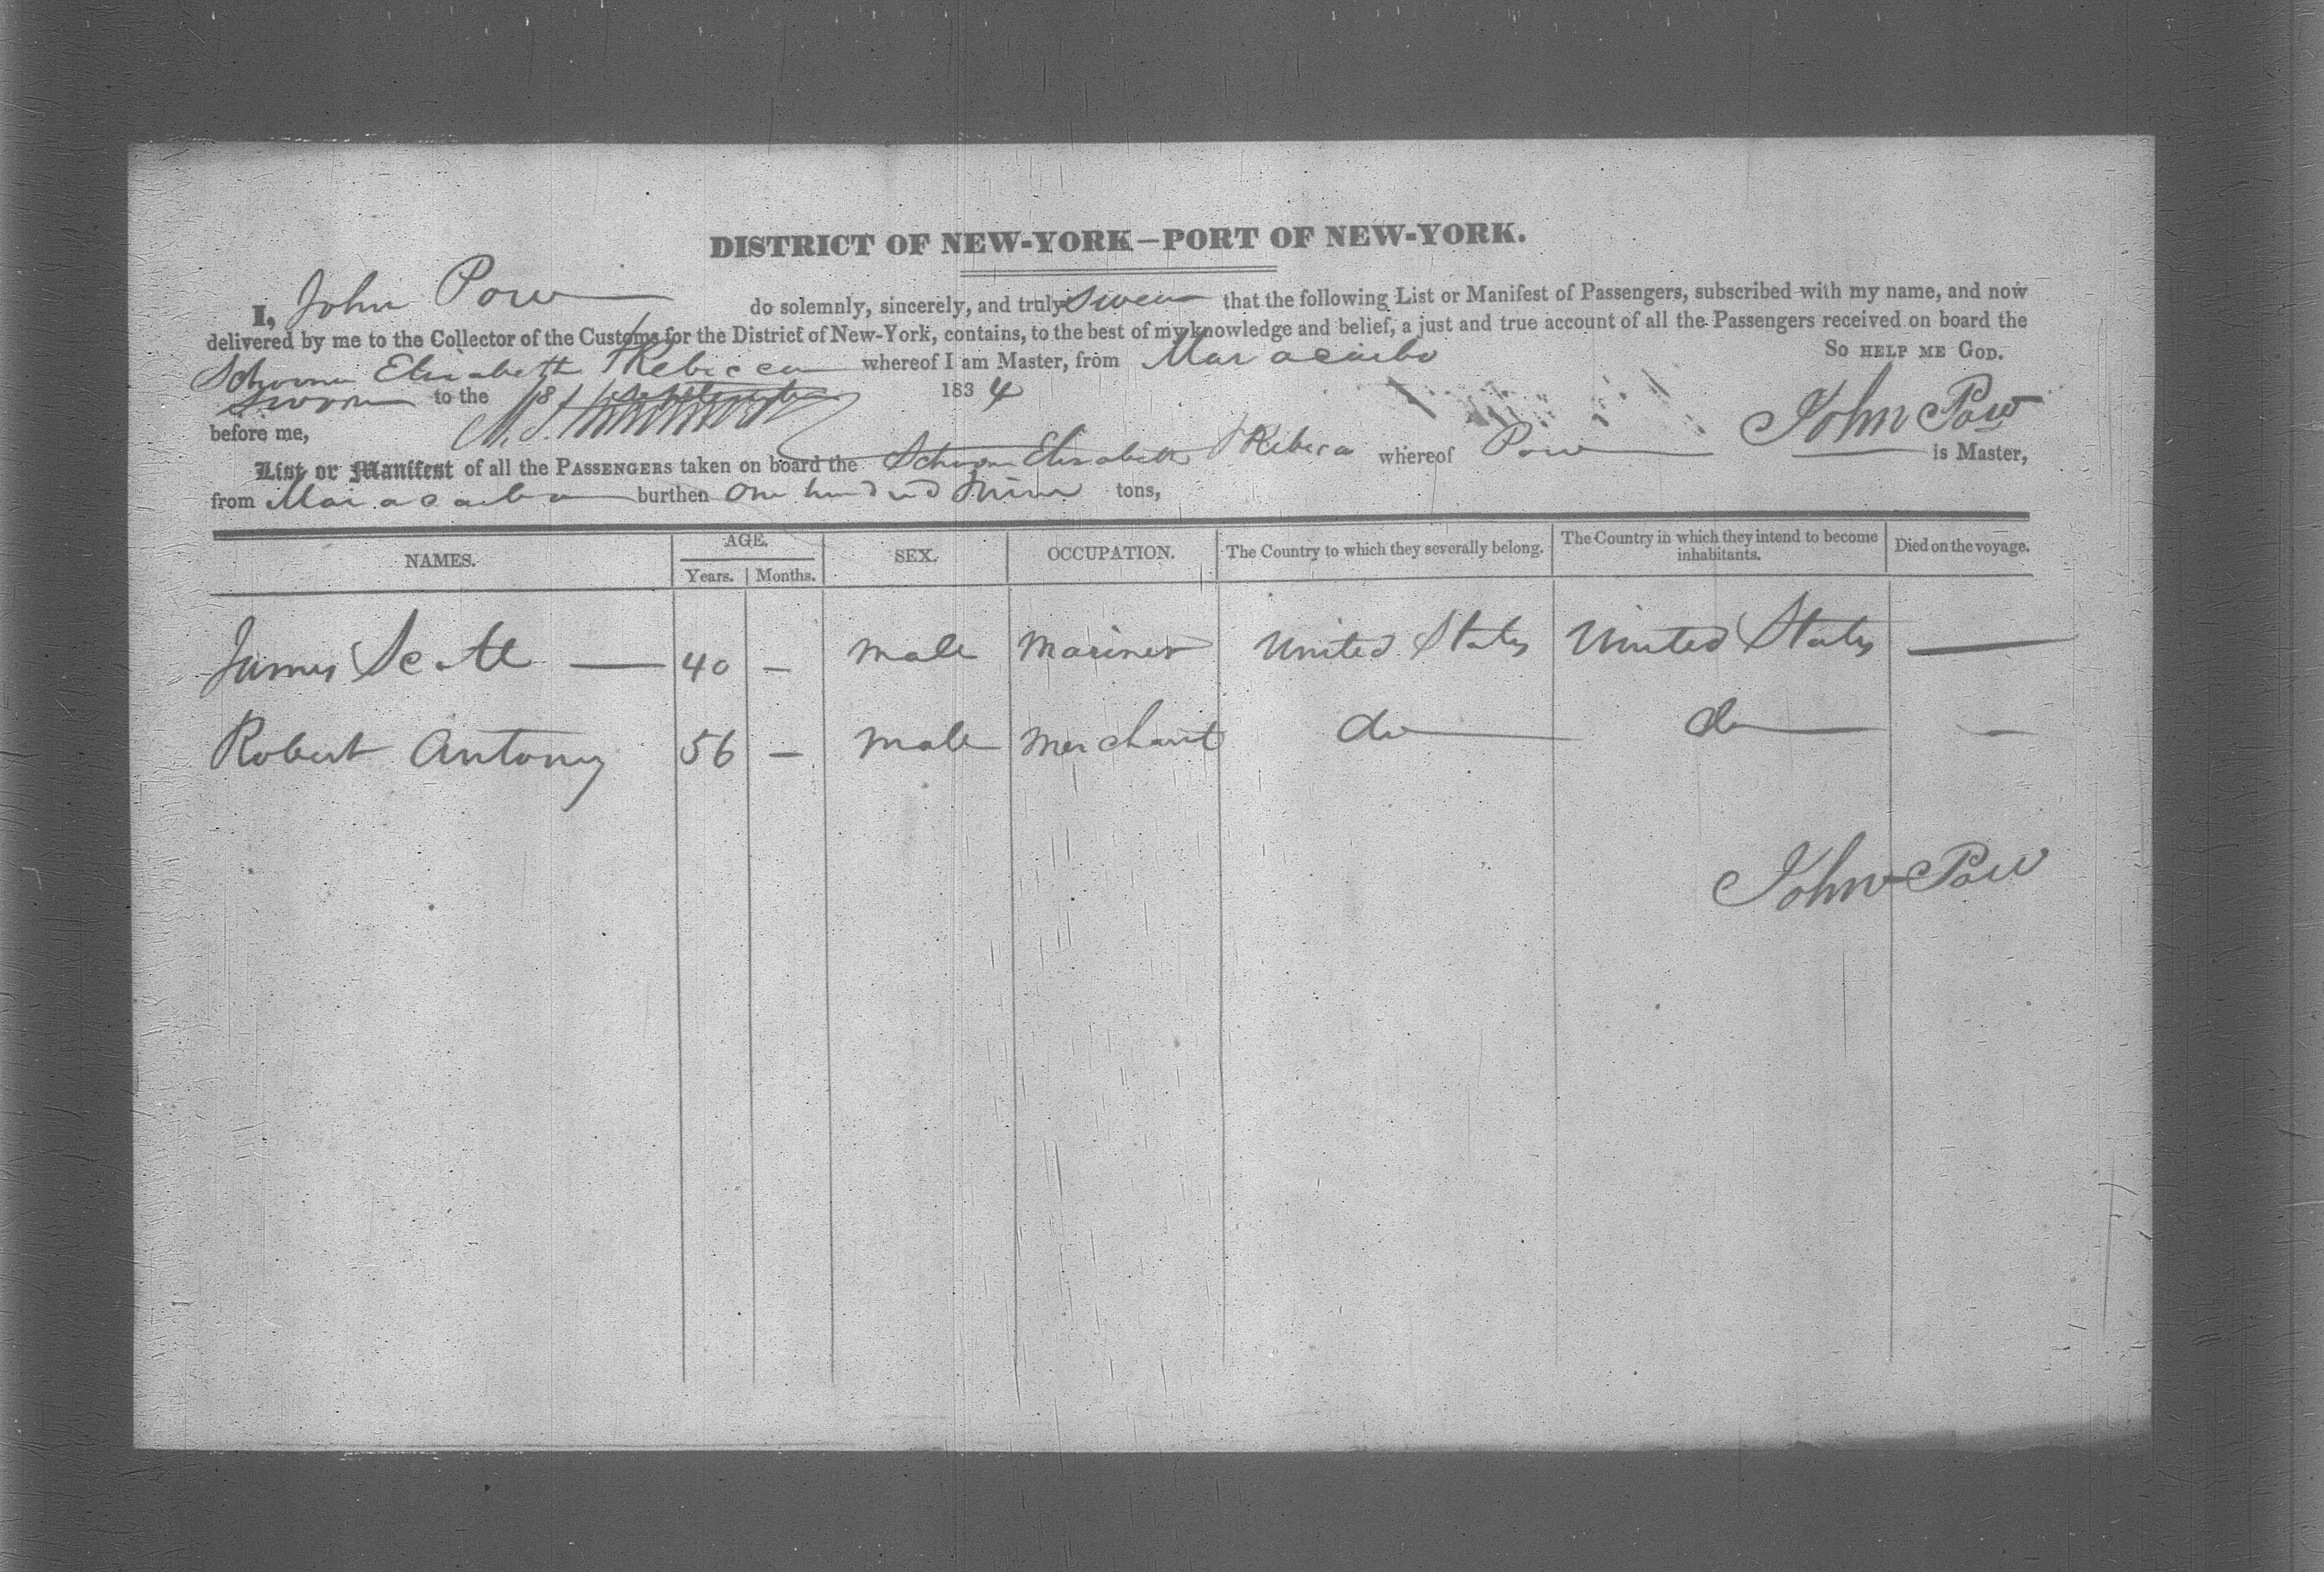 DISTRICT OF NEW-YORK—PORT OF NEW-YORK.
I, John Pow do solemnly, sincerely, and truly swear that the following List or Manifest of Passengers, subscribed with my name, and now
delivered by me to the Collector of the Customs for the District of New-York, contains, to the best of my knowledge and belief, a just and true account of all the Passengers received on board the
Schooner Elizabeth & Rebecca whereof I am Master, from Maracaibo So HELP ME GOD.
Sworn to the 18 September 1834
before me, John Pow
List or Manifest of all the PASSENGERS taken on board the Schoon Elizabeth & Rebeca whereof Pow is Master,
from Maracaibo burthen One hundred Nine tons,
NAMES. AGE. SEX. OCCUPATION. The Country to which they severally belong. The Country in which they intend to become inhabitants. Died on the voyage.
Years. Months.
James Scott — 40 — male Mariner United States United States —
Robert Antony 56 — male Merchant do do —
John Pow